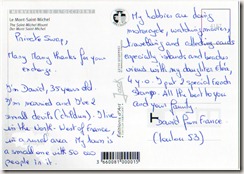 Le Mont Saint-Michel
The Saint-Michel Mount
Der Mont Saint-Michel
Private Swap,
Many Many thanks for your
exchange.
I'm David, 35 years old
I'm married and I've 2
small devils (children). I live
in the North-West of France,
in a rural area. My town is
a small one with 50 000
people in it.
My hobbies are doing
motorcycle, watching movies,
travelling and collecting cards
especially islands and beaches
views with my daughter Ellen,
4 y-o. I put 2 special French
Stamps. All the best to you
and your family
David from France
(Laval 53)
3 660081 000015